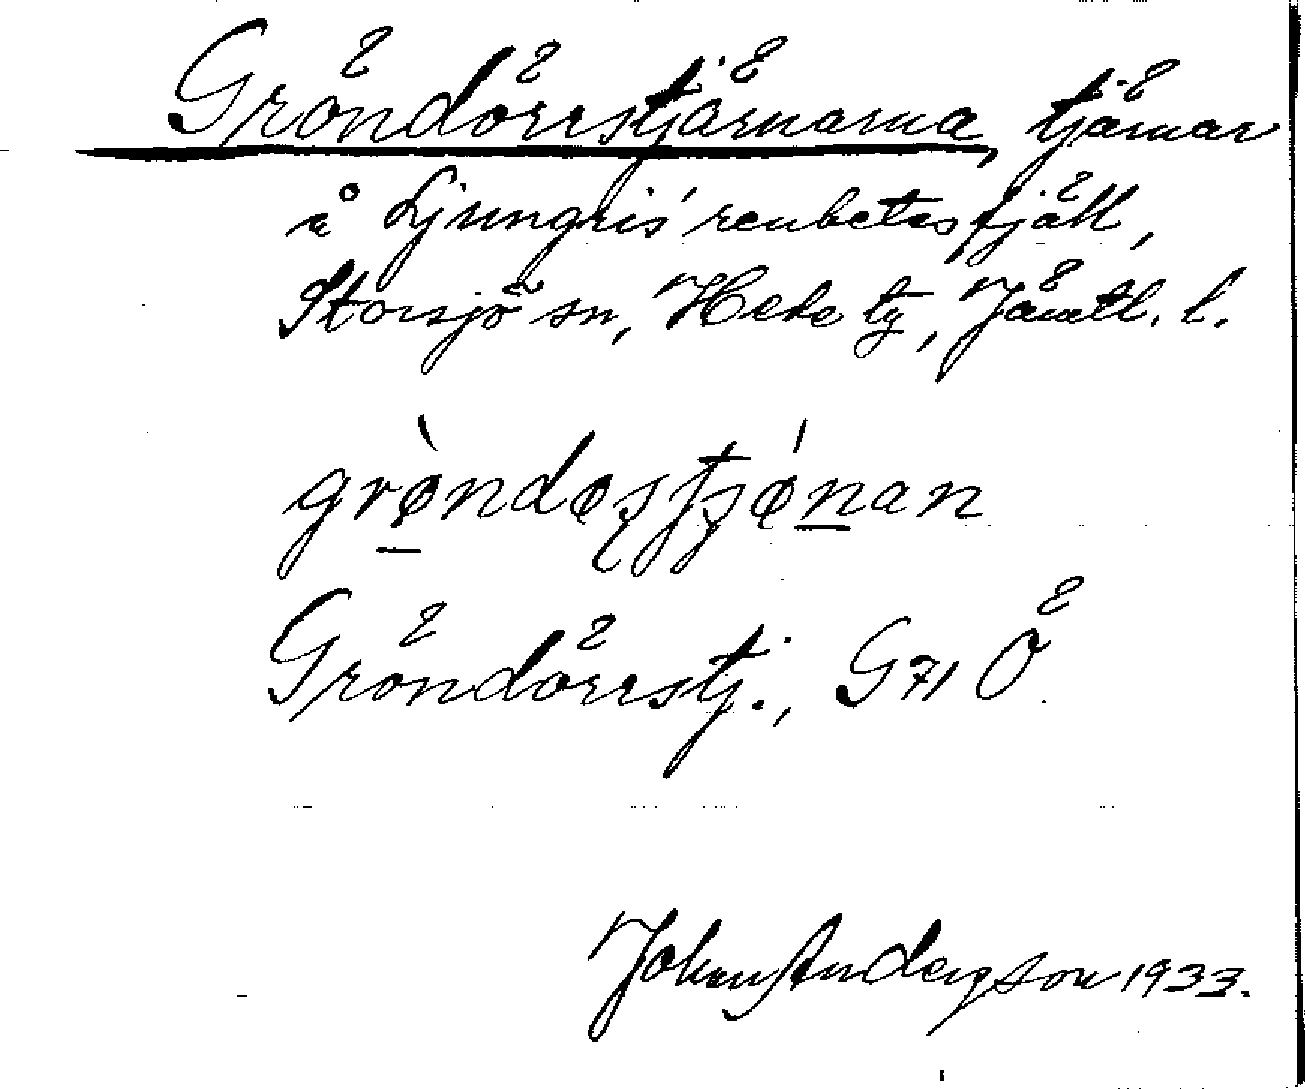 Gröndörrstjärnarna, tjärnar
å Ljungris' renbetesfjäll,
Storsjö sn, Hede tg, Jämtl. l.
grò̠ndøstjǿn̠an
Gröndörrstj., G71 Ö.
Johan Andersson 1933.